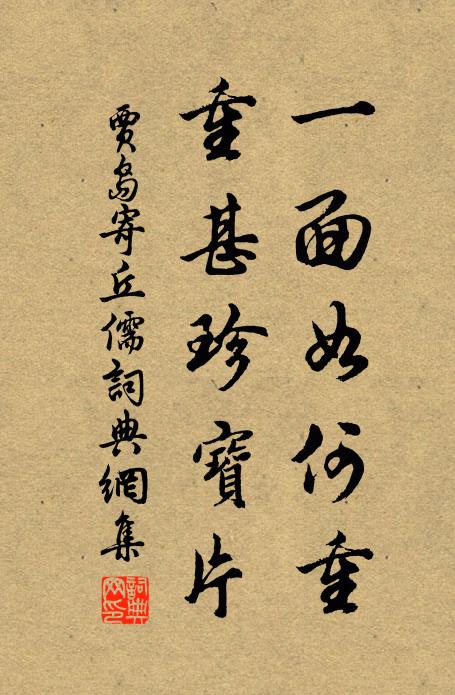 一面如何重
重甚珍寶片
賈島寄丘儒詞典網集
詞典網印